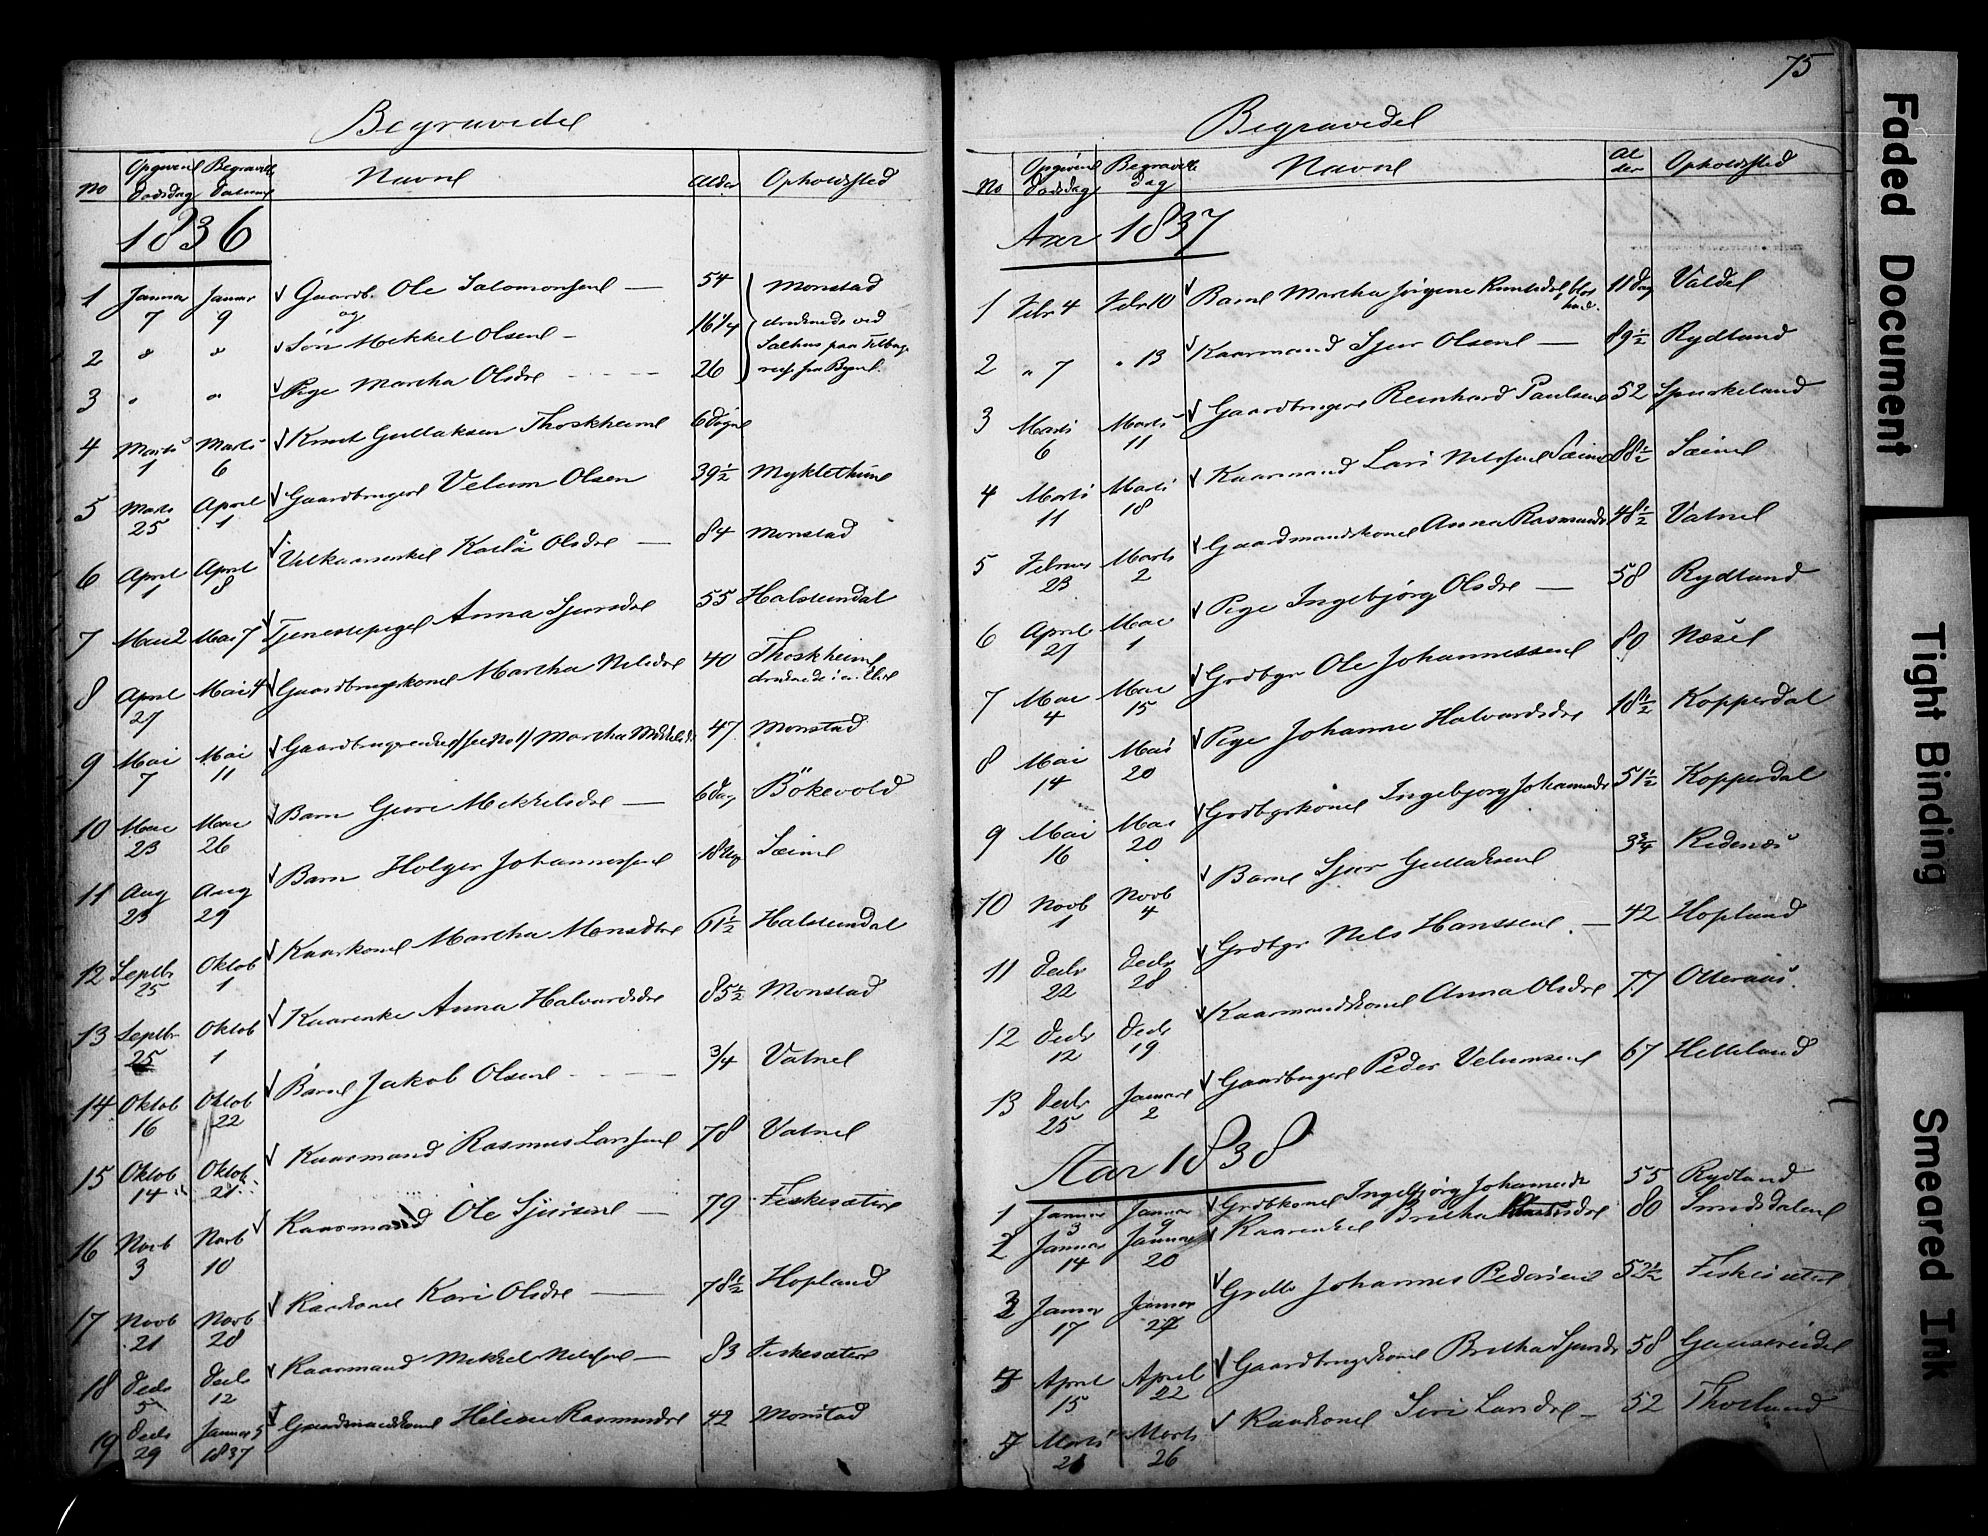 Begravede
No Opgiven Dødsdag Begravelse Datum Navne Alder Opholdssted
1836
1 Januar 7 Januar 9 Gaardb. Ole Salomonsen — 54 Monstad
og
2 " " Søn Mekkel Olsen — 16 1/4 druknede ved Salhus paa Tilbage
3 " " Pige Martha Olsdre 26 reise fra Byen.
4 Marts 1 Marts 6 Knut Gullaksen Thoskheim 6 Døgn
5 Marts 25 April 1 Gaardbruger Velum Olsen 39 1/2 Myklethun
6 April 1 April 8 Olsdre — 84 Monstad
7 Mai 2 Mai 7 Tjenestepige Anna Sjursdre 55 Halsteindal
8 April 27 Mai 4 Gaardbrugskone Martha Nilsdre 40 Thoskheim
druknede i en Elv
9 Mai 7 Mai 11 Gaardbrugerenke /see No 1/ Martha Mekkelsd. 47 Monstad
10 Mai 23 Mai 26 Barn Guri Mekkelsdre — 6 Dag Bökevold
11 Aug 23 Aug 29 Barn Holger Johannessen 18 Uger Sæim
12 Septbr 25 Oktob 1 Kaarkone Martha Monsdtre 61 1/2 Halsteindal
13 Septbr 25 Oktob 1 Kaarenke Anna Halvardsdre 85 1/2 Monstad
14 Oktob 16 Oktob 22 Barn Jakob Olsen 3/4 Vatne
15 Oktob 14 Oktob 21 Kaarmand Rasmus Larssen 78 Vatne
16 Novb 3 Novb 10 Kaarmand Ole Sjursen — 79 Fiskesæter
17 Novb 21 Novb 28 Kaarkone Kari Olsdre — 78 1/2 Hopland
18 Decb 5 Decb 12 Kaarmand Mekkel Nilssen — 83 Fiskesæter
19 Decb 29 Januar 5 1837 Gaardmandskone Helene Rasmusdre 42 Monstad
75
Begravede
No Opgivne Dødsdag Begravelse Dag Navne Alder Opholdssted
Aar 1837
1 Febr 4 Febr 10 Barn Martha Jørgine Knutsdre 11 Dag Valde
2 " 7 " 13 Kaarmand Sjur Olsen — 89 1/2 Rydland
3 Marts 6 Marts 11 Gaardbruger Reinhard Paulsen 52 Spurkeland
4 Marts 11 Marts 18 Kaarmand Lars Nilssen Sæim 88 1/2 Sæim
5 Februar 23 Marts 2 Gaardmandskone Anna Rasmusdr 48 1/2 Vatne
6 April 27 Mai 1 Pige Ingebjørg Olsdre — 58 Rydland
7 Mai 4 Mai 15 Grdbgr Ole Johannessen 80 Nøse
8 Mai 14 Mai 20 Pige Johanne Halvardsdre 18 1/2 Kopperdal
9 Mai 16 Mai 20 Grdbgrkone Ingebjorg Johannesdr 51 1/2 Kopperdal
10 Novb 1 Novb 4 Barn Sjur Gullaksen 3 3/4 Risnæs
11 Decb 22 Decb 28 Grdbgr Nels Hanssen. — 42 Hopland
12 Decb 12 Decb 19 Kaarmandskone Anna Olsdre 77 Otteraas.
13 Decb 25 Januar 2 Gaardbruger Peder Velumsen 67 Helleland
Aar 1838
1 Januar 3 Januar 9 Grdbkone Ingebjørg Johannesdr 55 Rydland
2 Januar 14 Januar 20 Kaarenke Britha 80 Smedsdalen
3 Januar 17 Januar 24 Grdbr Johannes Pedersen 52 1/2 Fiskesæter
4 April 15 April 22 Gaardbrugskone Britha Sjursdr 58 Gunstveidet
5 Marts 21 Marts 26 Kaarkone Siri Larsdre — 52 Thorland
Faded Document
Tight Binding
Smeared Ink